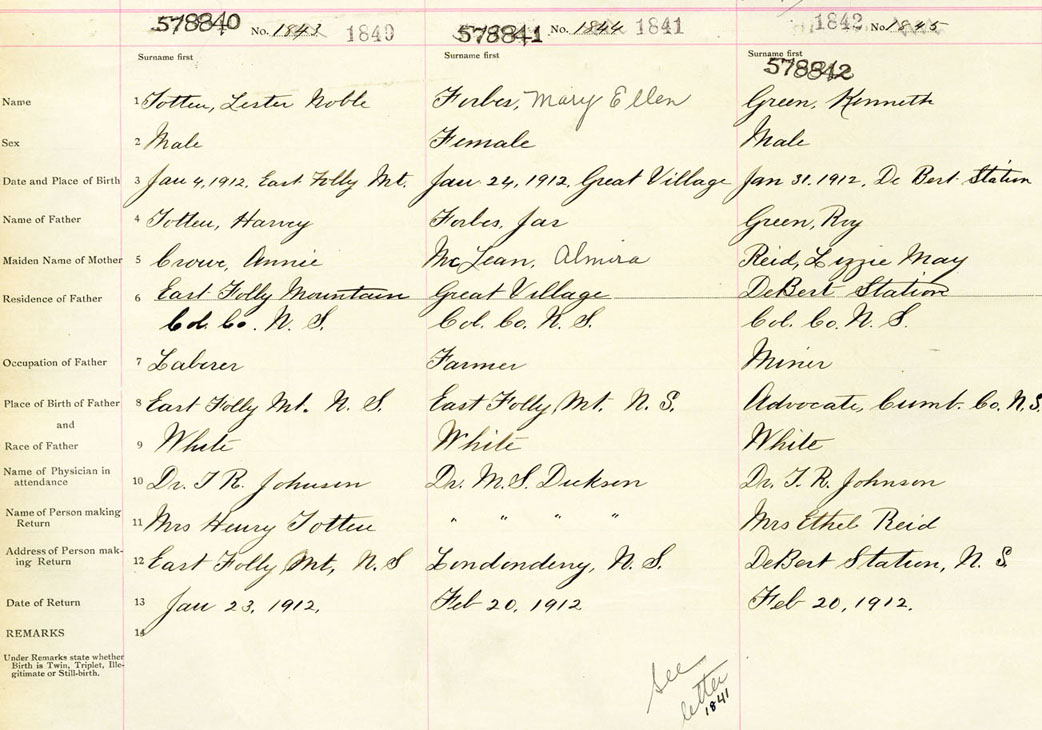 578840 No. 1843 1840 578841 No. 1844 1841 1842 No. 1845
Surname first Surname first Surname first
578842
Name 1 Totten, Lester Noble Forbes, Mary Ellen Green, Kenneth
Sex 2 Male Female Male
Date and Place of Birth 3 Jan 4, 1912, East Folly Mt. Jan 24, 1912, Great Village Jan 31, 1912, De Bert Station
Name of Father 4 Totten, Harvey Forbes, Jas Green, Roy
Maiden Name of Mother 5 Crowe, Annie McLean, Almira Reid, Lizzie May
Residence of Father 6 East Folly Mountain Great Village DeBert Station
Col. Co. N. S. Col. Co. N. S. Col. Co. N. S.
Occupation of Father 7 Laberer Farmer Miner
Place of Birth of Father 8 East Folly Mt. N. S. East Folly Mt. N. S. Advocate, Cumb. Co. N. S.
and
Race of Father 9 White White White
Name of Physician in
attendance 10 Dr. T R. Johnson Dr. M. S. Dickson Dr. T. R. Johnson
Name of Person making
Return 11 Mrs Henry Totten " " " " Mrs Ethel Reid
Address of Person mak-
ing Return 12 East Folly Mt, N. S Londonderry, N. S. DeBert Station, N. S.
Date of Return 13 Jan 23, 1912, Feb 20, 1912 Feb 20, 1912.
REMARKS 14
Under Remarks state whether
Birth is Twin, Triplet, Ille-
gitimate or Still-birth.
See
letter
1841